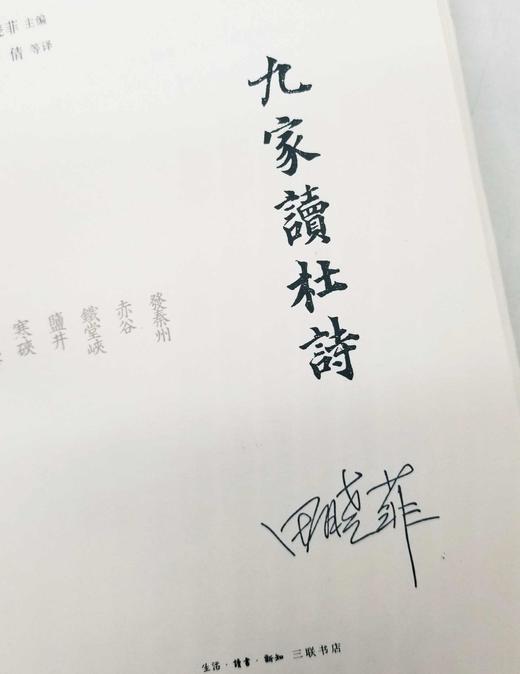 菲 主编
倩 等译
九家讀杜詩
發秦州
赤谷
鐵堂峽
鹽井
寒硤
田晓菲
生活·讀書·新知 三联书店